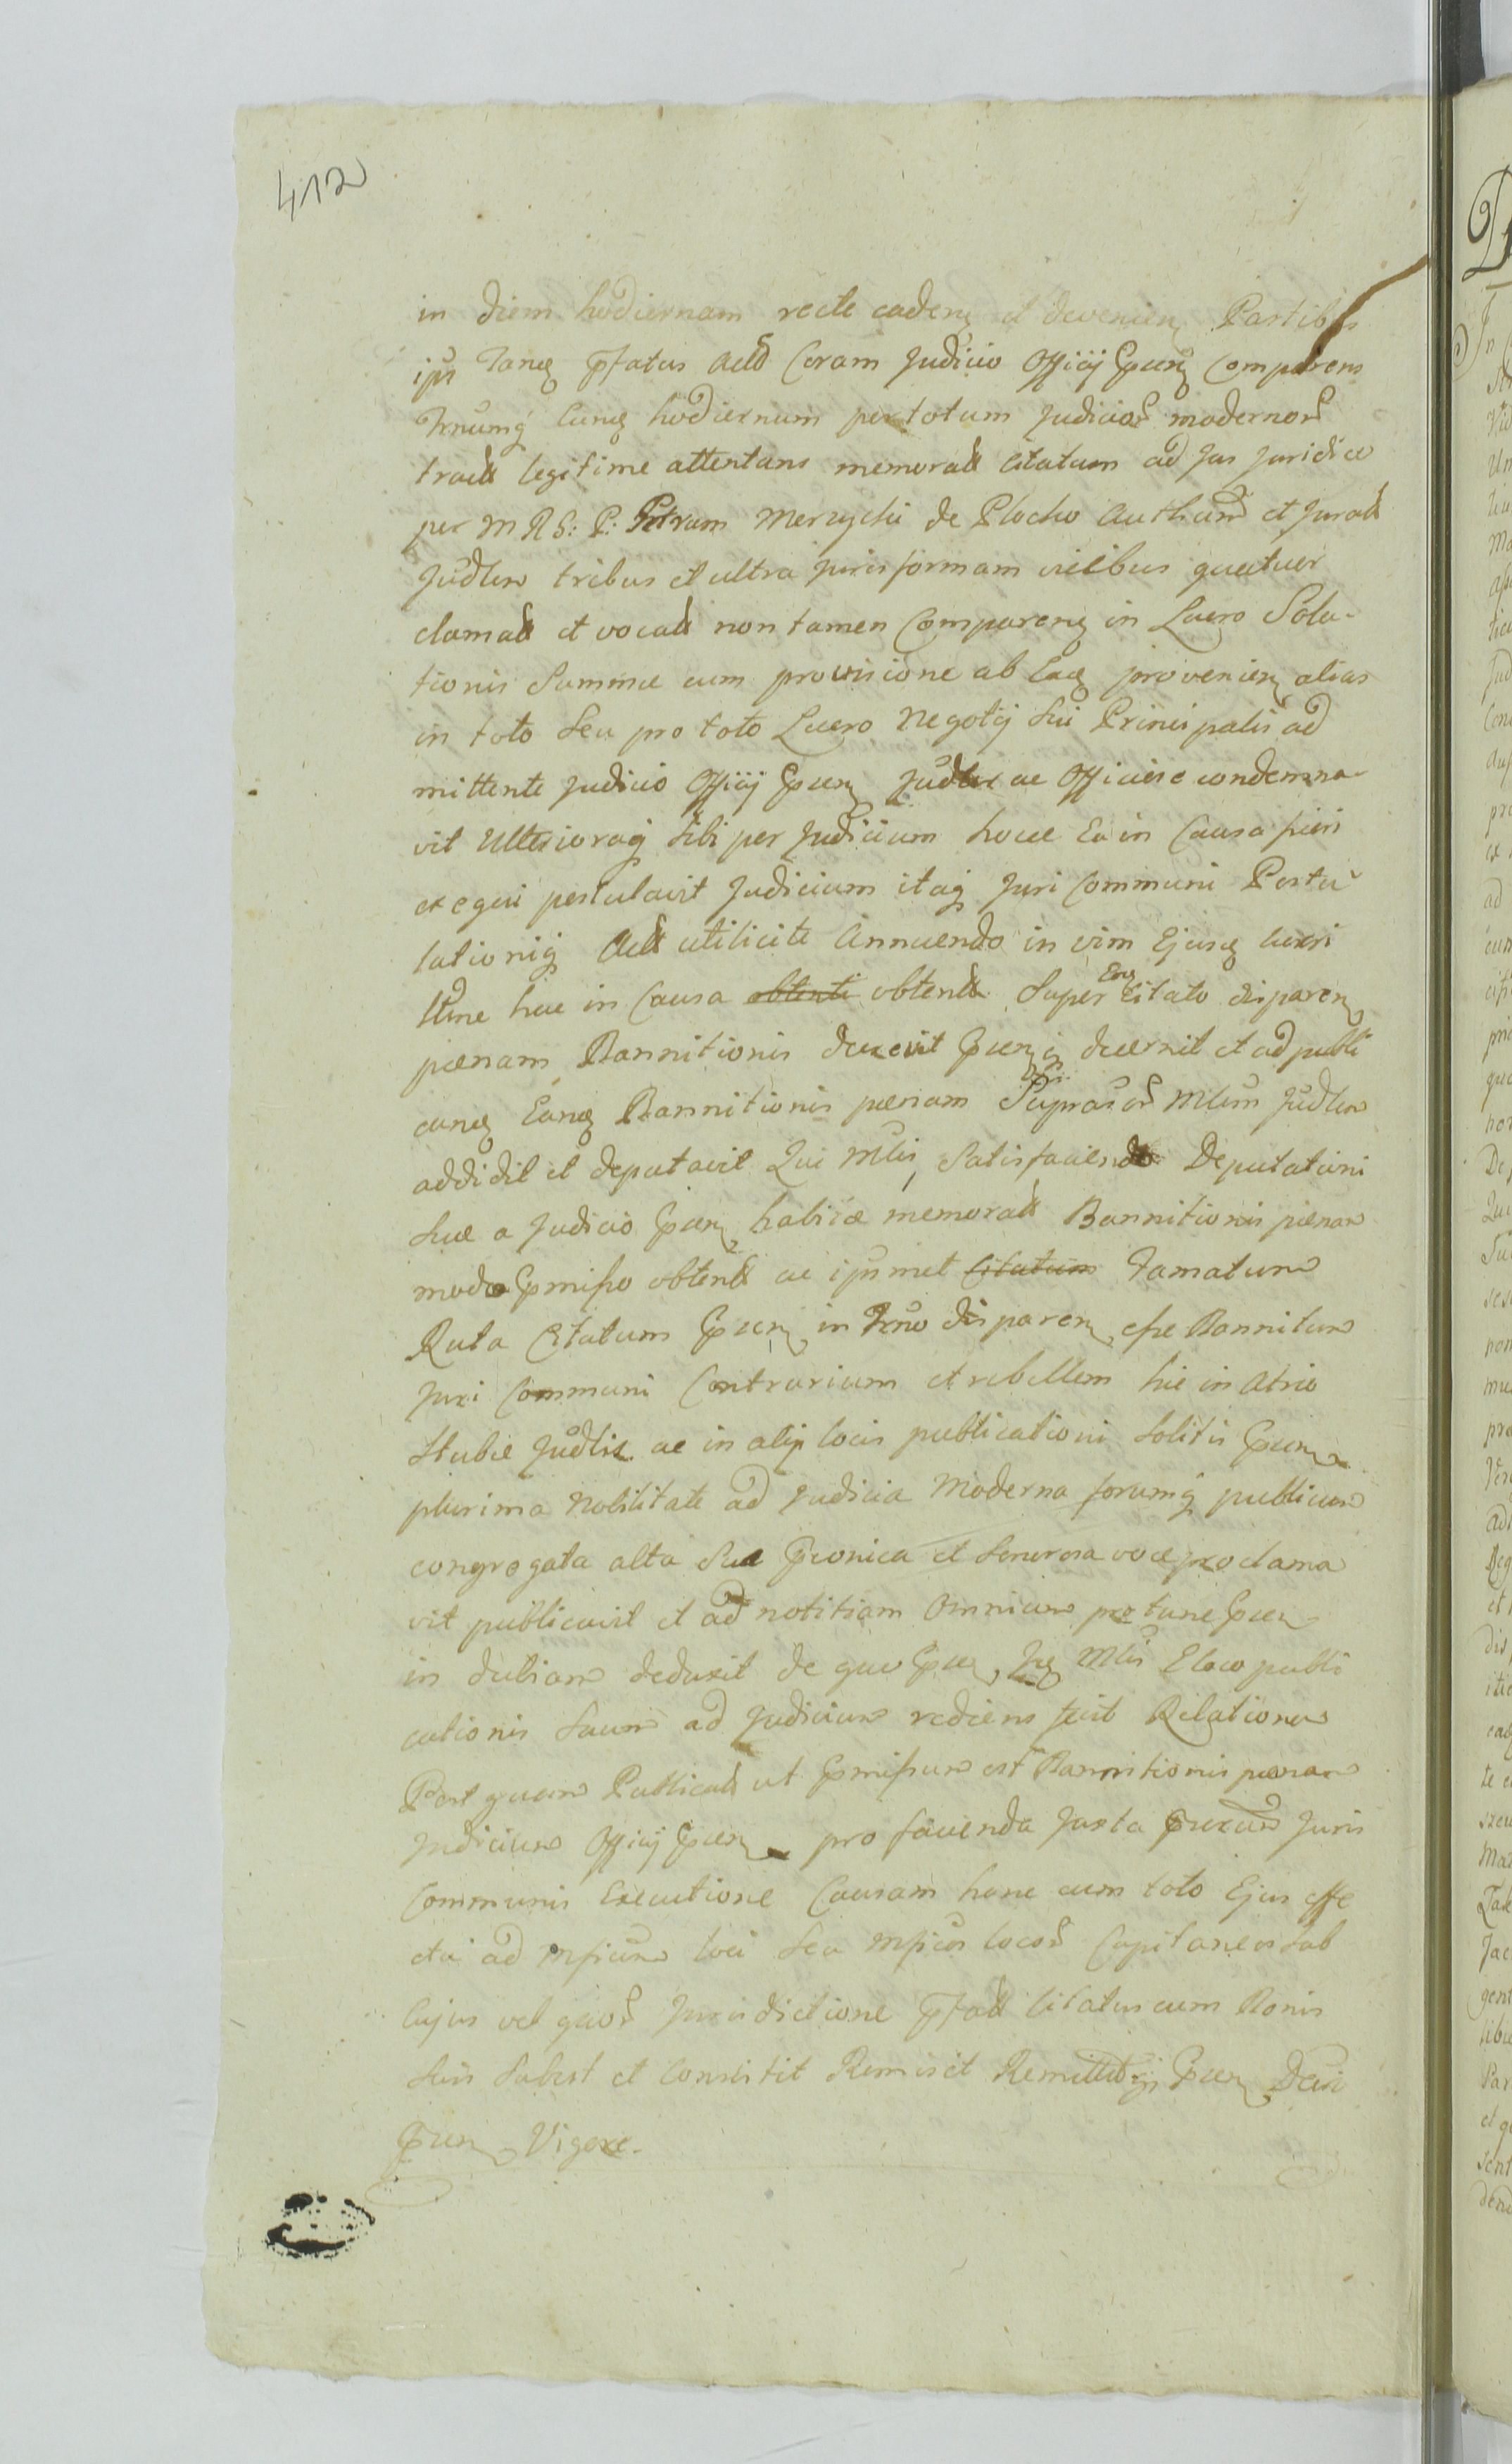 412
in diem hodiernam recte caden et devenien Partibus
ips Tanq ptatus Actor Coram Judicio Officij psen Comparens
Trnumq hunc hodiernum per totum Judicior modernor
tract legitime attentans memorat Citatum ad Jus Juridice
per M R S: P: Petrum Merzycki de Plocko Authum et Jurat
Judlem tribus et ultra juris formam vicibus quatuor
clamat et vocat non tamen Comparen in Lucro Solu-
tionis Summæ cum provisione ab Eaq provenien alias
in toto seu pro toto Lucro Negotij sui Principalis ad
mittente Judicio Officij psen Judlr ac Officiose condemna
vit Ulterioraq sibi per Judicium hocce Ea in Causa fieri
exequi postulavit Judicium itaq Juri Communi Postu
lationiq Act utilicite Annuendo in vim Ejusq lucri
ltme hac in Causa obtenti obtent Super Enq Citato disparen
pœnam Bannitionis decrevit psenq decernit et ad publi
canq Eanq Bannitionis pœnam Suprascr Mlem Judlem
addidit et deputavit Qui Mlis, satisfaciendo Deputationi
suæ a Judicio psen habitæ memorat Bannitionis pœnam
modo pmisso obtent ac ipsmet Citatum Famatum
Ruta Citatum psen in Trno disparen esse Bannitum
Juri Communi Contrarium et rebellem hic in Atrio
Stubæ Judlis ac in alijs locis publicationi solitis psen
plurima Nobilitate ad Judicia Moderna forumq publicum
congregata alta sua præconica et Sonorosa voce proclama
vit publicavit et ad notitiam Omnium pro tunc psen
in dubiam deduxit de quo psen, Jq Mlis E loco publi
cationis Suam ad Judicium rediens fecit Relationem
Post quam Publicat ut pmissum est Bannitionis pœnam
Judicium Officij psen pro facienda Juxta pscrum Juris
Communis Executione Causam hanc cum toto Ejus effe
ctu ad Mficum loci seu Mficos locor Capitaneos sub
Cujus vel quor Jurisdictione ptat Citatus cum Bonis
suis Subest et Consistit Remisit Remittitq psen Decr
psen Vigore.